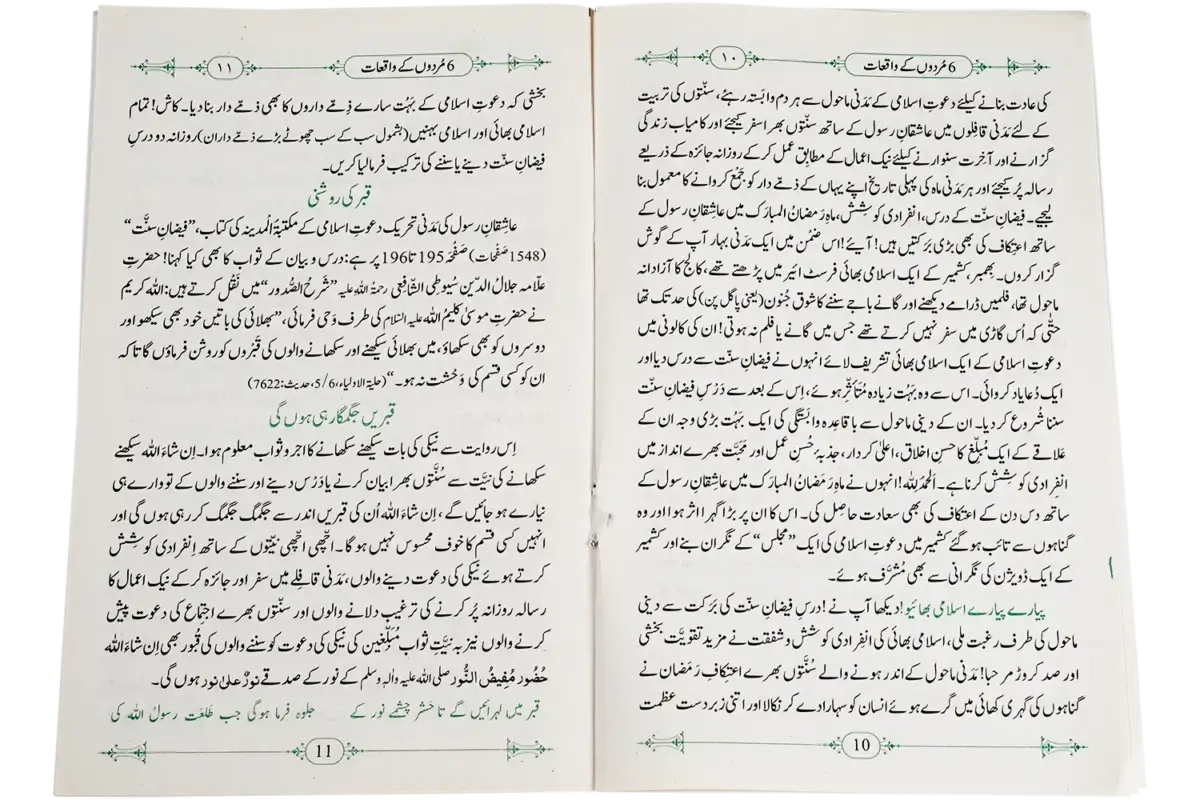 6 مُردوں کے واقعات
۱۰
کی عادت بنانے کیلئے دعوتِ اسلامی کے مَدَنی ماحول سے ہر دم وابَستہ رہئے، سنّتوں کی تربیت
کے لئے مَدَنی قافِلوں میں عاشِقانِ رسول کے ساتھ سنّتوں بھرا سفر کیجئے اور کامیاب زندگی
گزارنے اور آخِرت سنوارنے کیلئے نیک اعمال کے مطابق عمل کرکے روزانہ جائزہ کے ذریعے
رسالہ پُر کیجئے اور ہر مَدَنی ماہ کی پہلی تاریخ اپنے یہاں کے ذمّے دار کو جَمْع کروانے کا معمول بنا
لیجیے۔ فیضانِ سنّت کے درس، انفرادی کوشِش، ماہِ رَمَضانُ المبارَک میں عاشقانِ رسول کے
ساتھ اعتِکاف کی بھی بڑی بَرَکتیں ہیں! آیئے! اس ضِمْن میں ایک مَدَنی بہار آپ کے گوش
گزار کروں۔ بھمبر، کشمیر کے ایک اسلامی بھائی فرسٹ ائیر میں پڑھتے تھے، کالج کا آزادانہ
ماحول تھا، فلمیں ڈرامے دیکھنے اور گانے باجے سننے کا شوق جُنون (یعنی پاگل پن) کی حد تک تھا
حتّٰی کہ اُس گاڑی میں سفر نہیں کرتے تھے جس میں گانے یا فلم نہ ہوتی! ان کی کالونی میں
دعوتِ اسلامی کے ایک اسلامی بھائی تشریف لائے انہوں نے فیضانِ سنّت سے درس دیا اور
ایک دُعا یاد کروائی۔ اس سے وہ بَہُت زیادہ مُتَأثّر ہوئے، اِس کے بعد سے دَرْسِ فیضانِ سنّت
سننا شُروع کر دیا۔ ان کے دینی ماحول سے باقاعدہ وابَستگی کی ایک بَہُت بڑی وجہ ان کے
عَلاقے کے ایک مُبلّغ کا حسنِ اخلاق، اعلیٰ کردار، جذبۂ حُسنِ عمل اور مَحبَّت بھرے انداز میں
انفِرادی کوشِش کرنا ہے۔ اَلْحَمْدُ لِلّٰہ! انہوں نے ماہِ رَمَضانُ المبارَک میں عاشقانِ رسول کے
ساتھ دس دن کے اعتکاف کی بھی سعادت حاصِل کی۔ اس کا ان پر بڑا گہرا اثر ہوا اور وہ
گناہوں سے تائب ہوگئے کشمیر میں دعوتِ اسلامی کی ایک ”مجلس“ کے نگران بنے اور کشمیر
کے ایک ڈویژن کی نگرانی سے بھی مُشرَّف ہوئے۔
پیارے پیارے اسلامی بھائیو! دیکھا آپ نے! درسِ فیضانِ سنّت کی بَرَکت سے دینی
ماحول کی طرف رغبت ملی، اسلامی بھائی کی انفِرادی کوشش و شفقت نے مزید تقویَّت بخشی
اور صد کروڑ مرحبا! مَدَنی ماحول کے اندر ہونے والے سُنَّتوں بھرے اعتِکافِ رَمَضان نے
گناہوں کی گہری کھائی میں گرے ہوئے انسان کو سہارا دے کر نکالا اور اتنی زبردست عظمت
10
6 مُردوں کے واقعات
۱۱
بخشی کہ دعوتِ اسلامی کے بَہُت سارے ذِمّے داروں کا بھی ذمّے دار بنا دیا۔ کاش! تمام
اسلامی بھائی اور اسلامی بہنیں (بشمول سب کے سب چھوٹے بڑے ذمّے داران) روزانہ دو درسِ
فیضانِ سنّت دینے یا سننے کی ترکیب فرمالیا کریں۔
قبر کی روشنی
عاشقانِ رسول کی مَدَنی تحریک دعوتِ اسلامی کے مکتبۃُ الْمدینہ کی کتاب، ”فیضانِ سنَّت“
(1548 صفحات) صَفْحَہ 195 تا 196 پر ہے: درس و بیان کے ثواب کا بھی کیا کہنا! حضرتِ
علّامہ جلالُ الدّین سُیوطِی الشّافِعی رحمۃُ اللہِ علیہ ”شَرْحُ الصُّدور“ میں نَقْل کرتے ہیں: اللہ کریم
نے حضرتِ موسیٰ کلیمُ اللہ علیہ السّلام کی طرف وَحی فرمائی، ”بھلائی کی باتیں خود بھی سیکھو اور
دوسروں کو بھی سکھاؤ، میں بھلائی سیکھنے اور سکھانے والوں کی قَبْروں کو روشن فرماؤں گا تاکہ
ان کو کسی قسم کی وَحْشت نہ ہو۔“ (حلیۃ الاولیاء، 5/6، حدیث: 7622)
قبریں جگمگا رہی ہوں گی
اِس روایت سے نیکی کی بات سیکھنے سکھانے کا اجر و ثواب معلوم ہوا۔ اِن شاءَ اللہ سیکھنے
سکھانے کی نیَّت سے سُنَّتوں بھرا بیان کرنے یا دَرْس دینے اور سننے والوں کے تو وارے ہی
نیارے ہو جائیں گے، اِن شاءَ اللہ اُن کی قبریں اندر سے جگمگ جگمگ کر رہی ہوں گی اور
انہیں کسی قسم کا خوف محسوس نہیں ہو گا۔ اچّھی اچّھی نیّتوں کے ساتھ اِنفرادی کوشِش
کرتے ہوئے نیکی کی دعوت دینے والوں، مَدَنی قافِلے میں سفر اور جائزہ کرکے نیک اعمال کا
رسالہ روزانہ پُر کرنے کی ترغیب دلانے والوں اور سنّتوں بھرے اِجتِماع کی دعوت پیش
کرنے والوں نیز بہ نیَّتِ ثواب مُبلِّغین کی نیکی کی دعوت کو سننے والوں کی قُبور بھی اِن شاءَ اللہ
حُضُور مُفِیضُ النُّور صلی اللہ علیہ والہٖ وسلم کے نور کے صدقے نورٌ علیٰ نور ہوں گی۔
قبر میں لہرائیں گے تا حشر چشمے نور کے جلوہ فرما ہوگی جب طَلعَت رسولُ اللہ کی
11